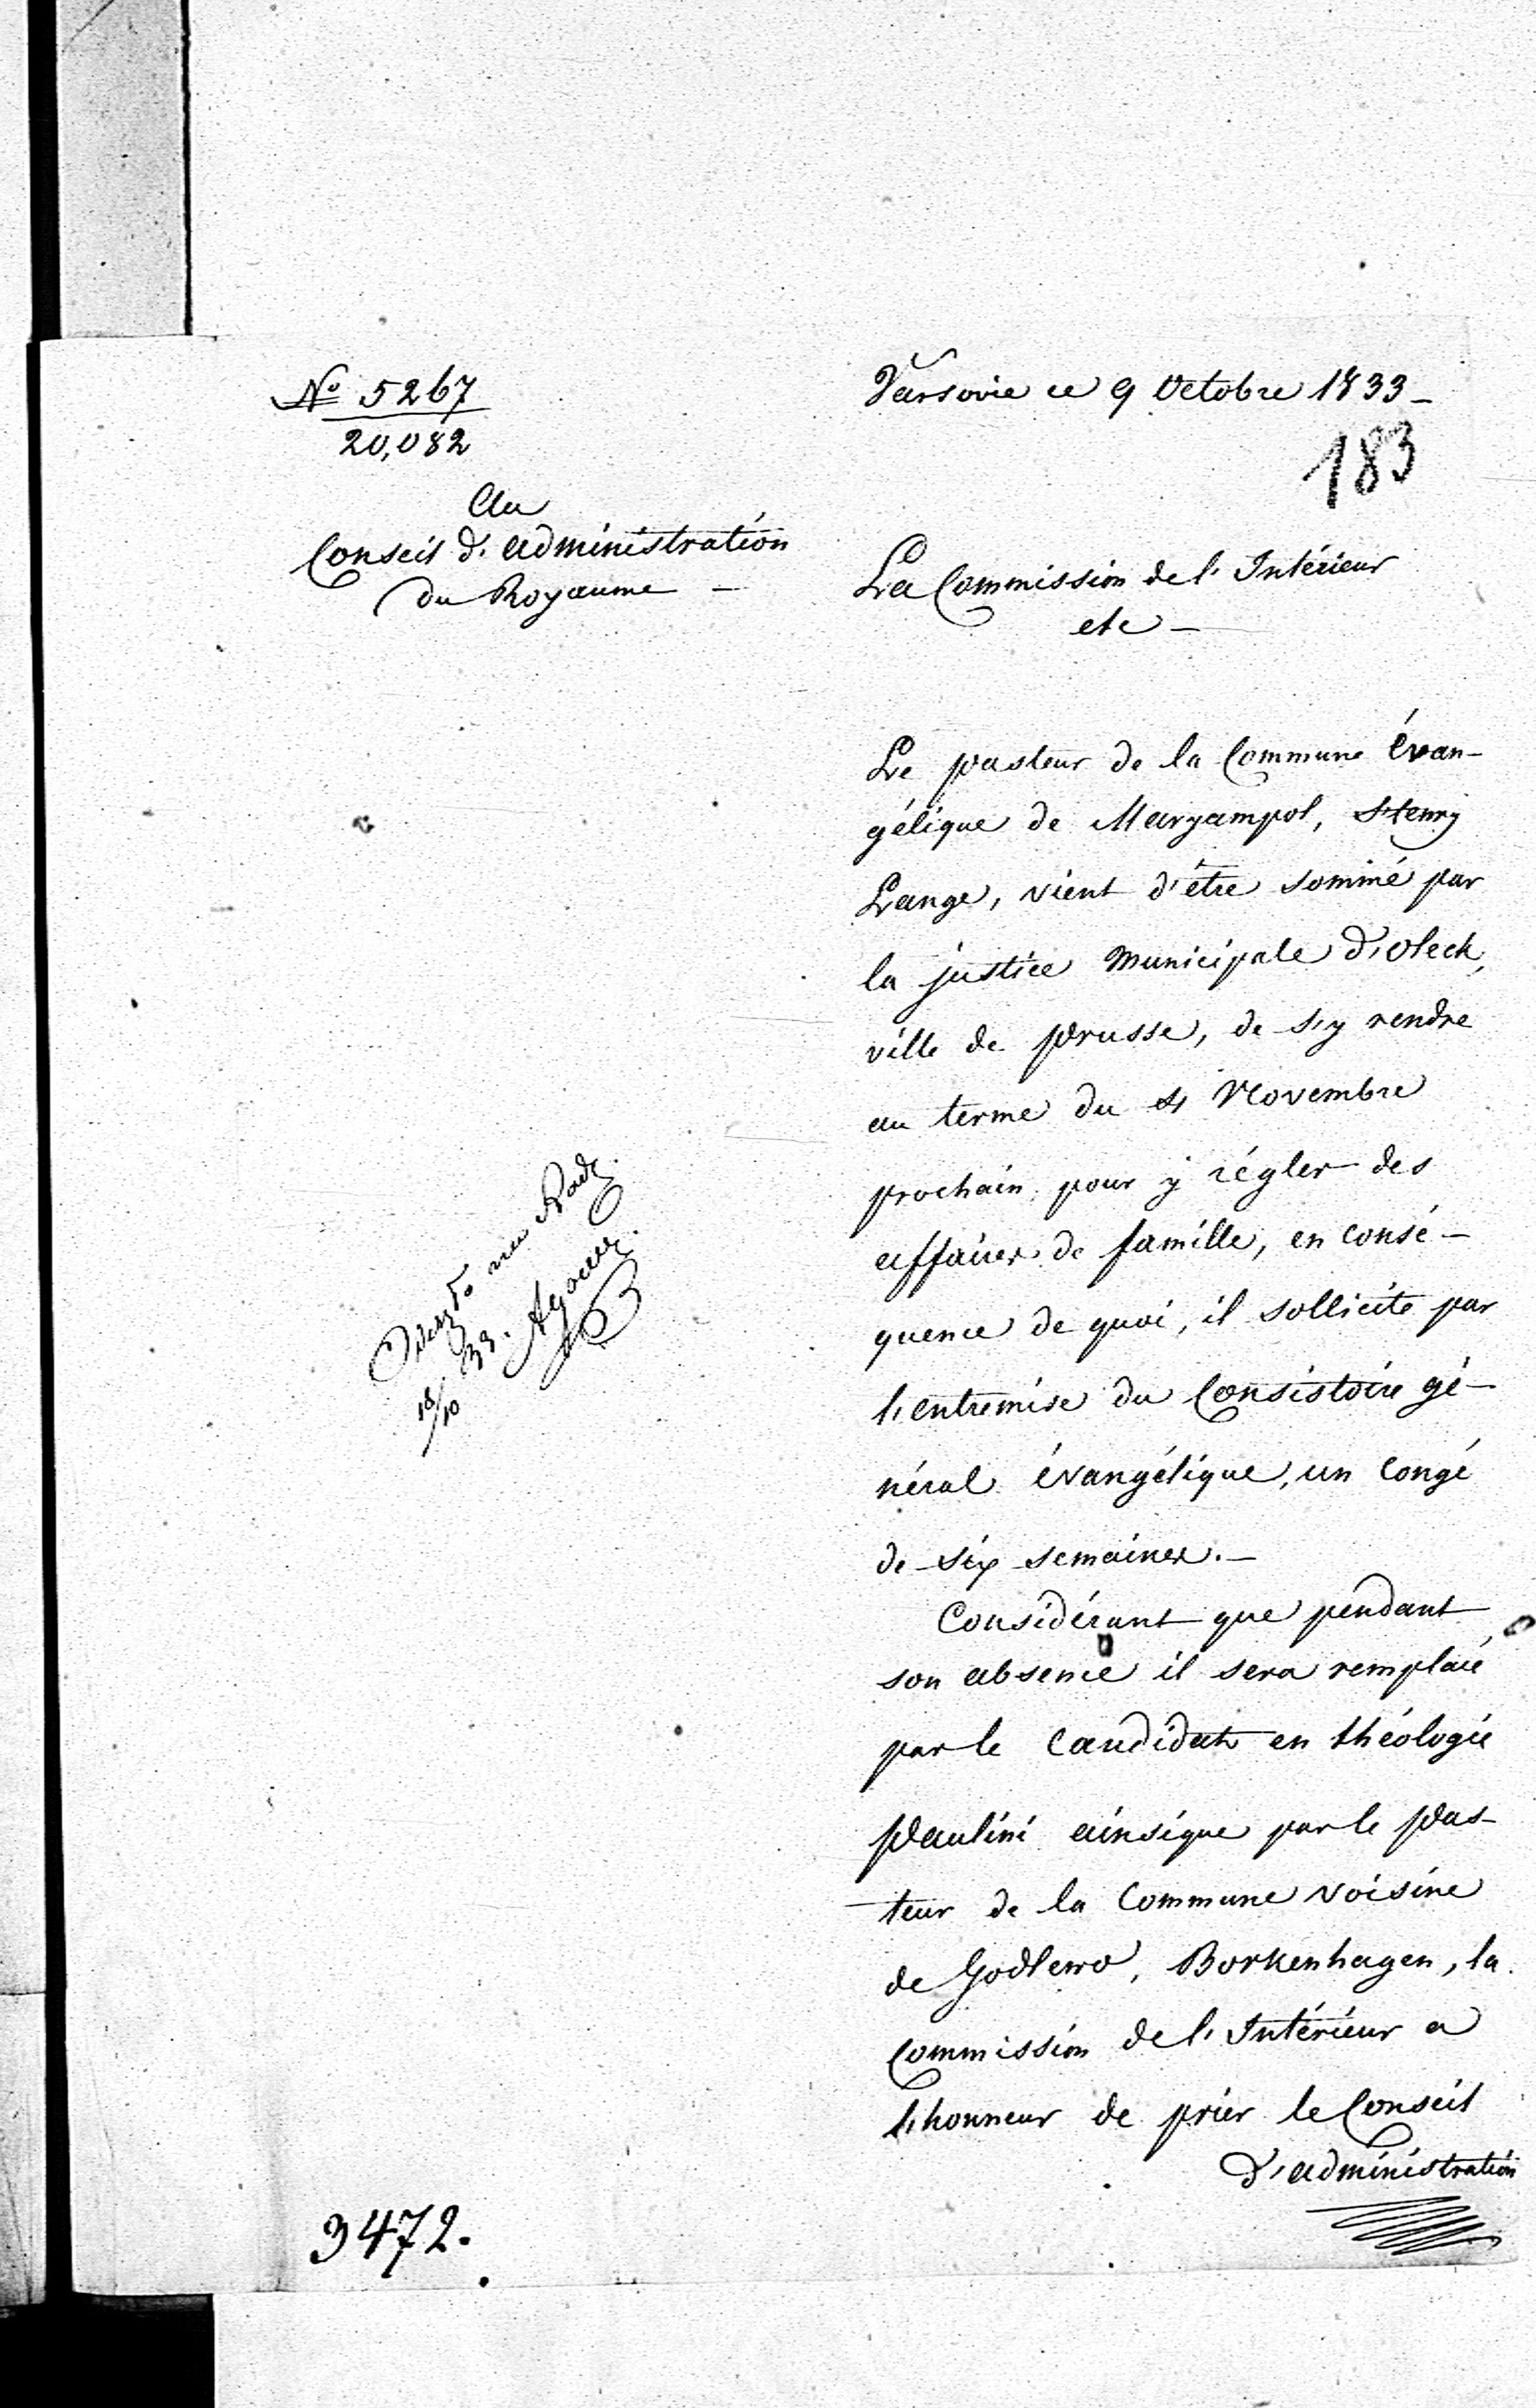 № 5267
20,082
Au
Conseil d'administration
du Royaume —
Varsovie ce 9 Octobre 1833 —
183
La Commission de l'Intérieur
etc —
Le pasteur de la Commune Évan-
gélique de Maryampol, Henry
Lange, vient d'être sommé par
la justice municipale d'Oleck,
ville de Prusse, de s'y rendre
au terme du 4 Novembre
prochain, pour y régler des
affaires de famille, en consé-
quence de quoi, il sollicite par
l'entremise du Consistoire gé-
néral évangélique, un Congé
de six semaines. —
Considérant que pendant
son absence il sera remplacé
par le Candidat en théologie
Paulini ainsique par le Pas-
teur de la Commune voisine
de Godlewo, Borkenhagen, la
Commission de l'Intérieur a
l'honneur de prier le Conseil
d'administration
na Radz.
18/10 33.
3472.